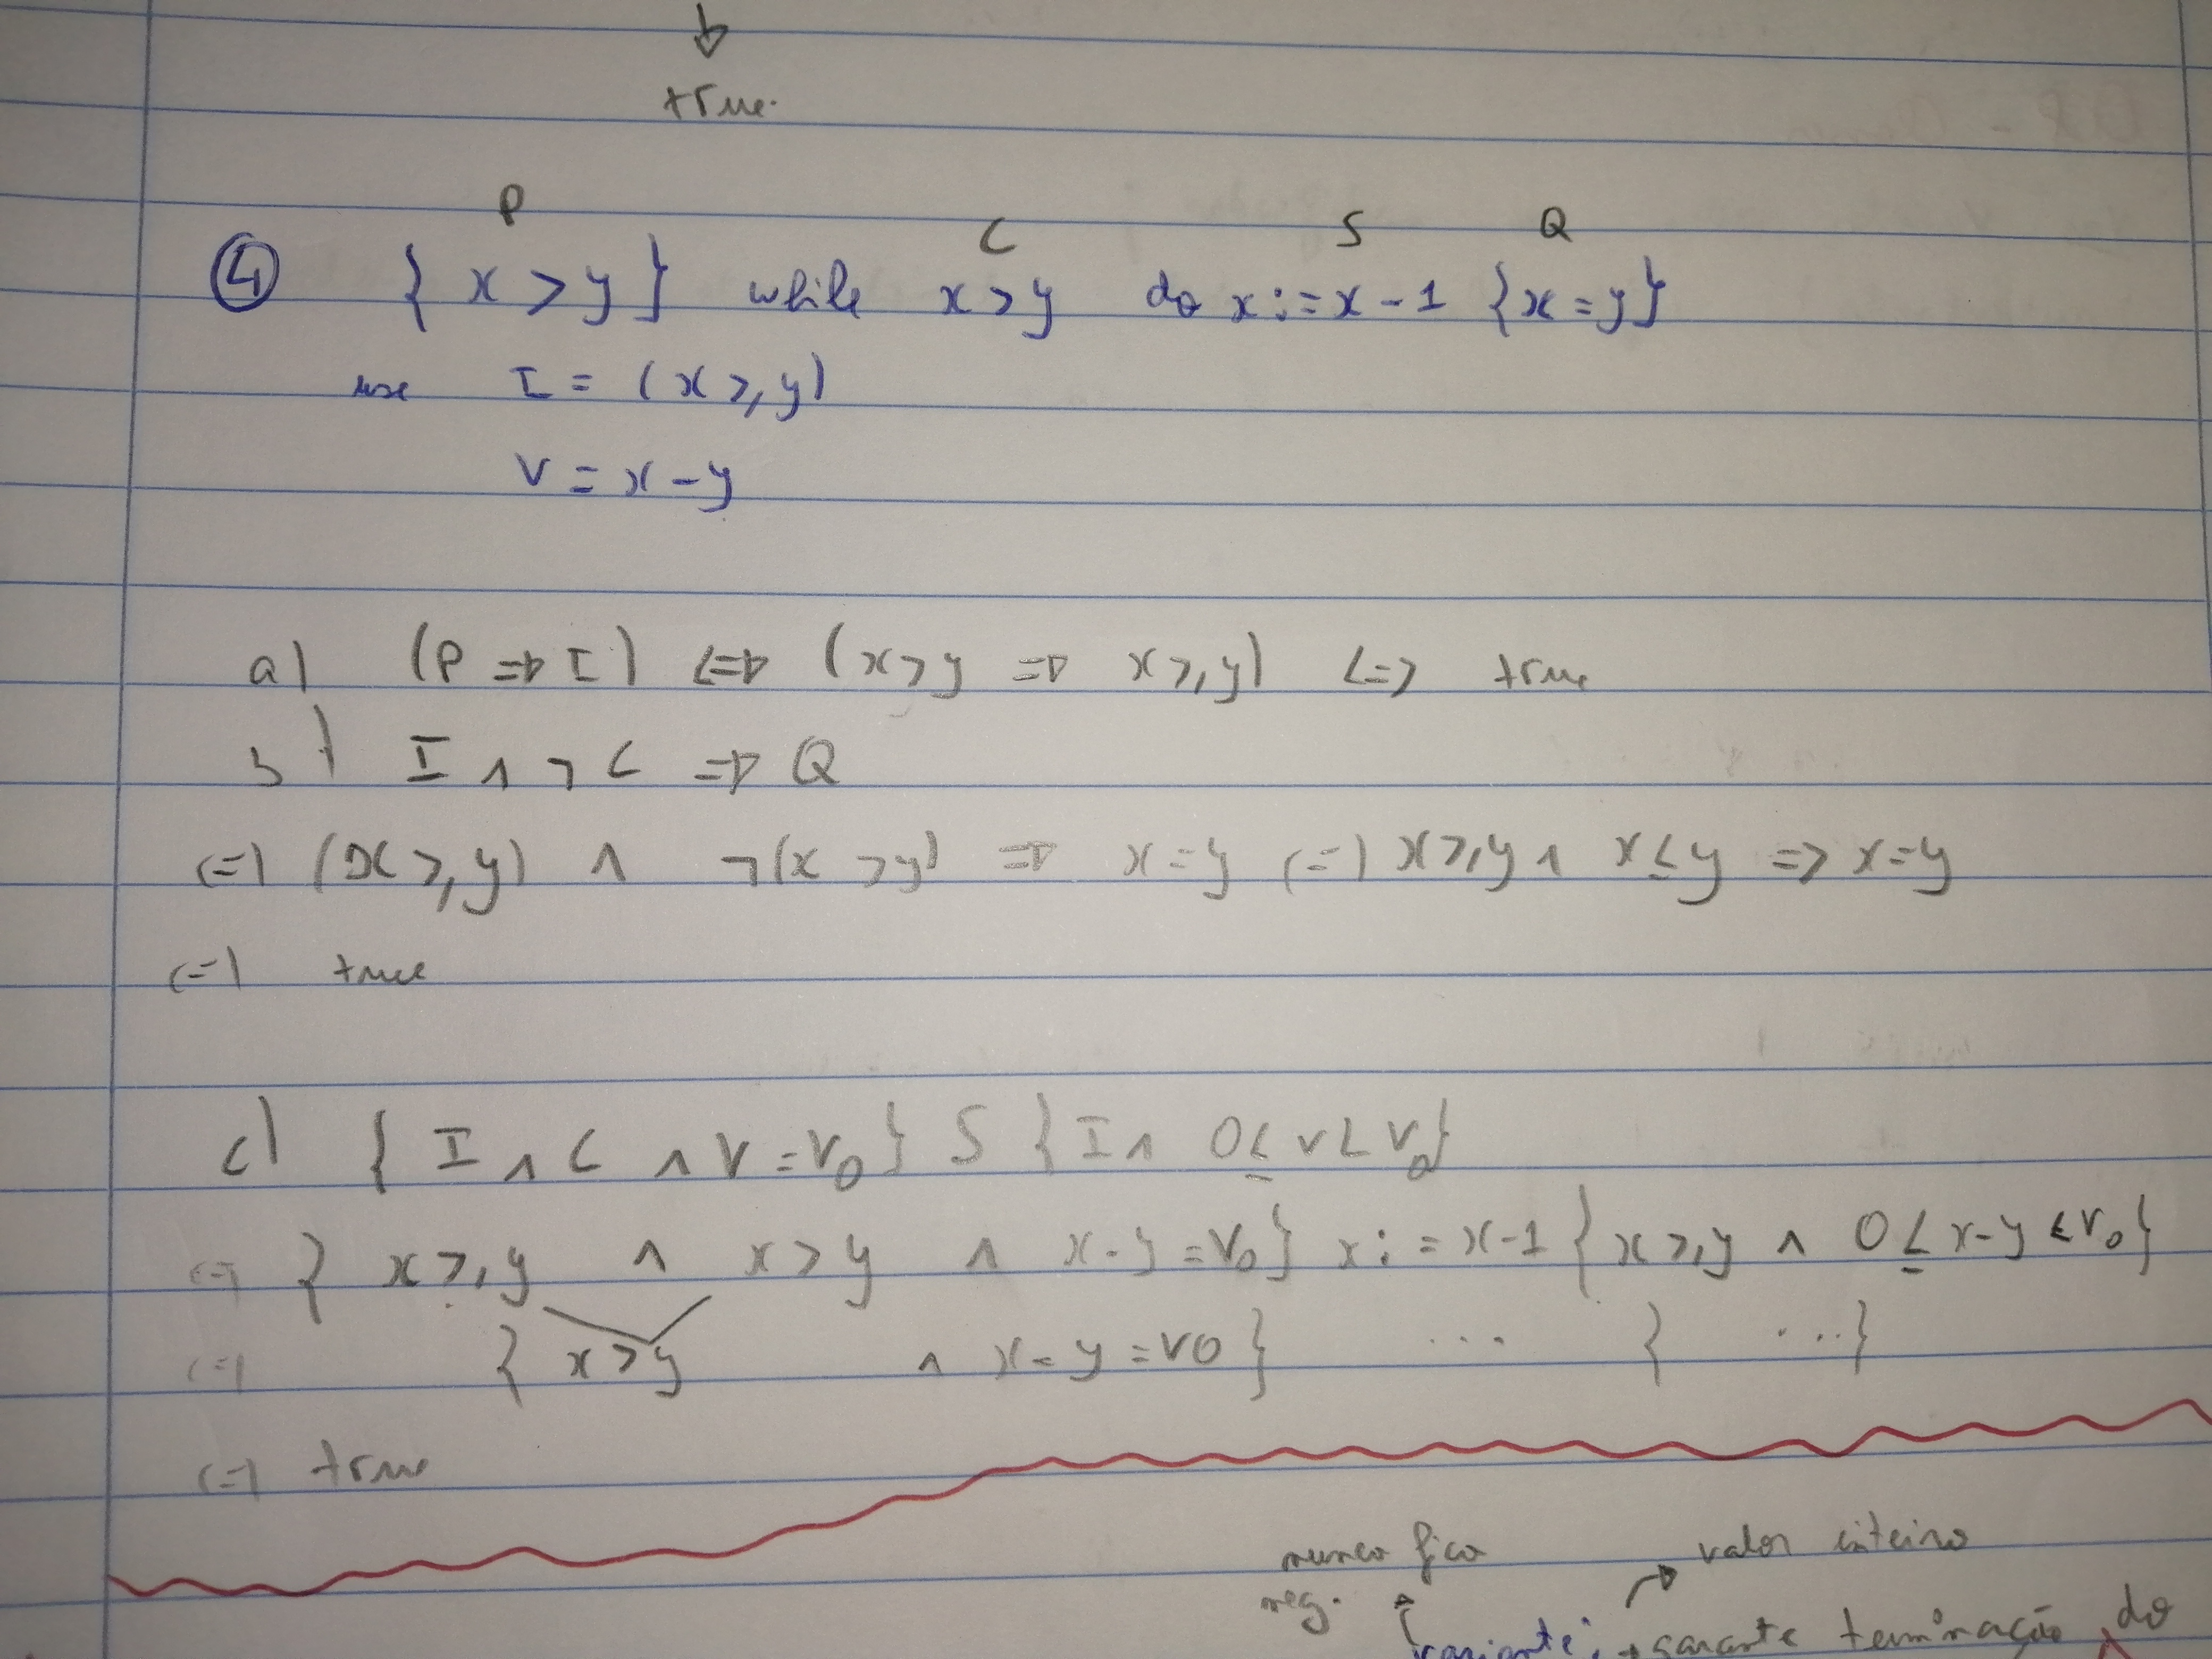 true.
P C S Q
④ { x > y } while x > y do x := x - 1 { x = y }
use I = ( x ⩾ y )
V = x - y
a) ( P => I ) <=> ( x > y => x ⩾ y ) <=> true
b) I ∧ ¬ C => Q
(=) ( x ⩾ y ) ∧ ¬ ( x > y ) => x = y (=) x ⩾ y ∧ x ≤ y => x = y
(=) true
c) { I ∧ C ∧ V = V₀ } S { I ∧ 0 ≤ V < V₀ }
(=) { x ⩾ y ∧ x > y ∧ x - y = V₀ } x := x - 1 { x ⩾ y ∧ 0 ≤ x - y < V₀ }
(=) { x > y ∧ x - y = V0 } ... { ... }
(=) true
nunca fica → valor inteiro
neg.
variante: → garante terminação do